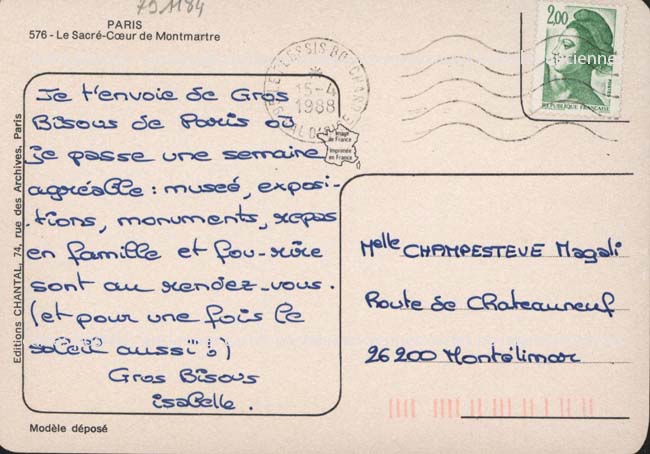 791184
PARIS
576 - Le Sacré-Cœur de Montmartre
Je t'envoie de Gros
Bisous de Paris où
je passe une semaine
agréable : museé, exposi-
tions, monuments, repas
en famille et fou-rire
sont au rendez-vous.
(et pour une fois le
soleil aussi !)
Gros Bisous
isabelle.
Modèle déposé
Editions CHANTAL, 74, rue des Archives, Paris
LE PLESSIS BOUCHARD
15-4
1988
VAL D'OISE
Image
de France
Imprimée
en France
2,00
REPUBLIQUE FRANÇAISE
ancienne
Melle CHAMPESTEVE Magali
Route de Chateauneuf
26200 Montélimar